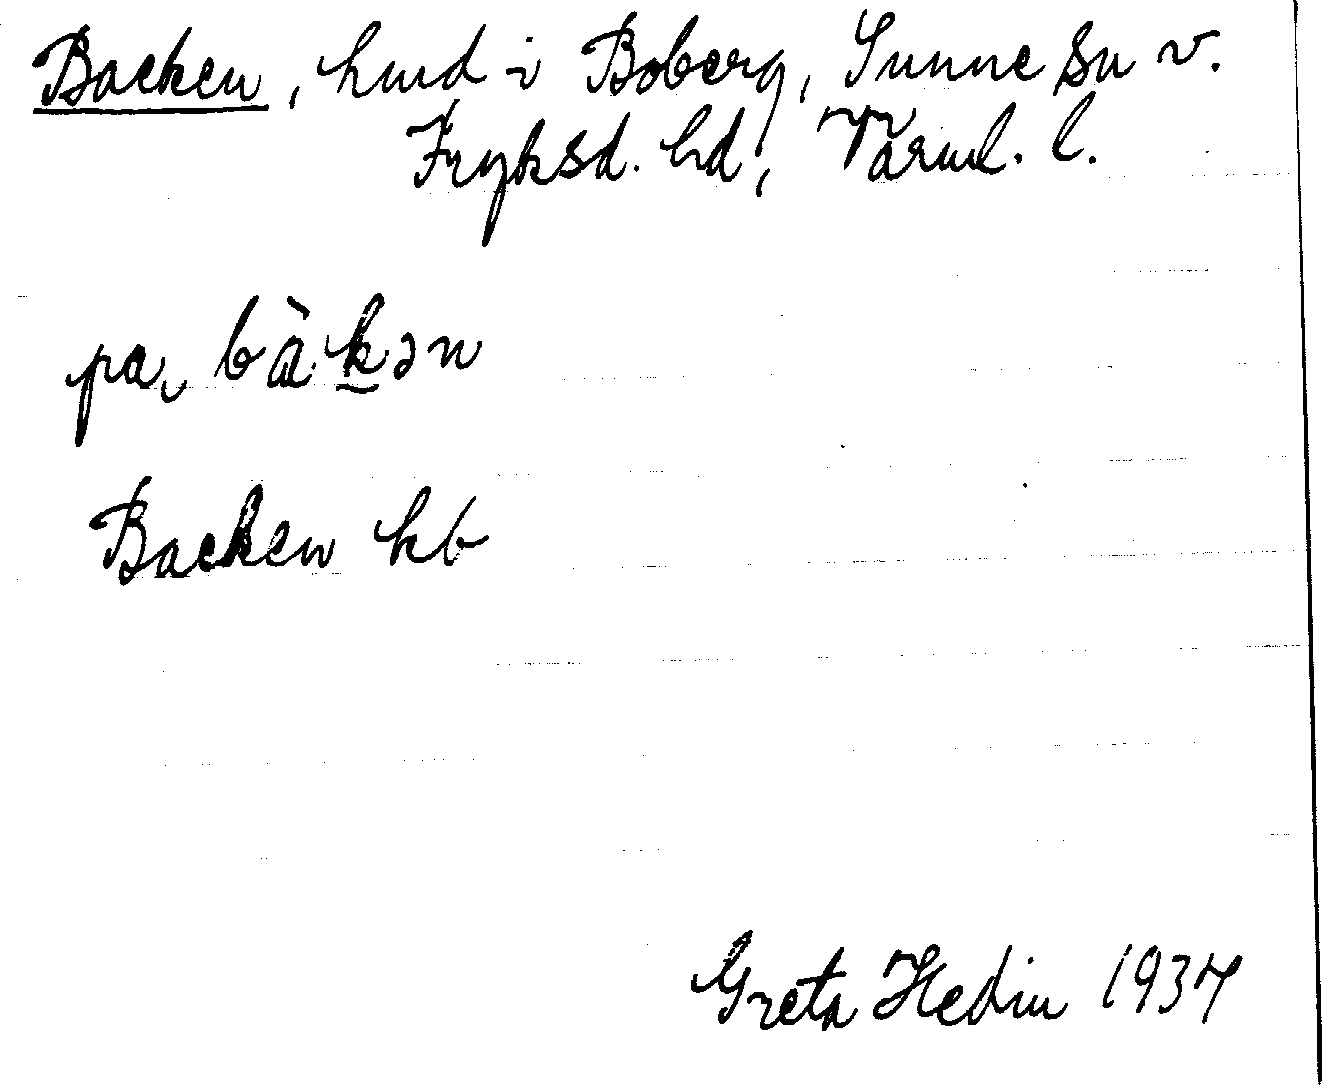 Backen, hmd i Boberg, Sunne sn v.
Fryksd. hd, Värml. l.
pa, bàkən
Backen kb
Greta Hedin 1937